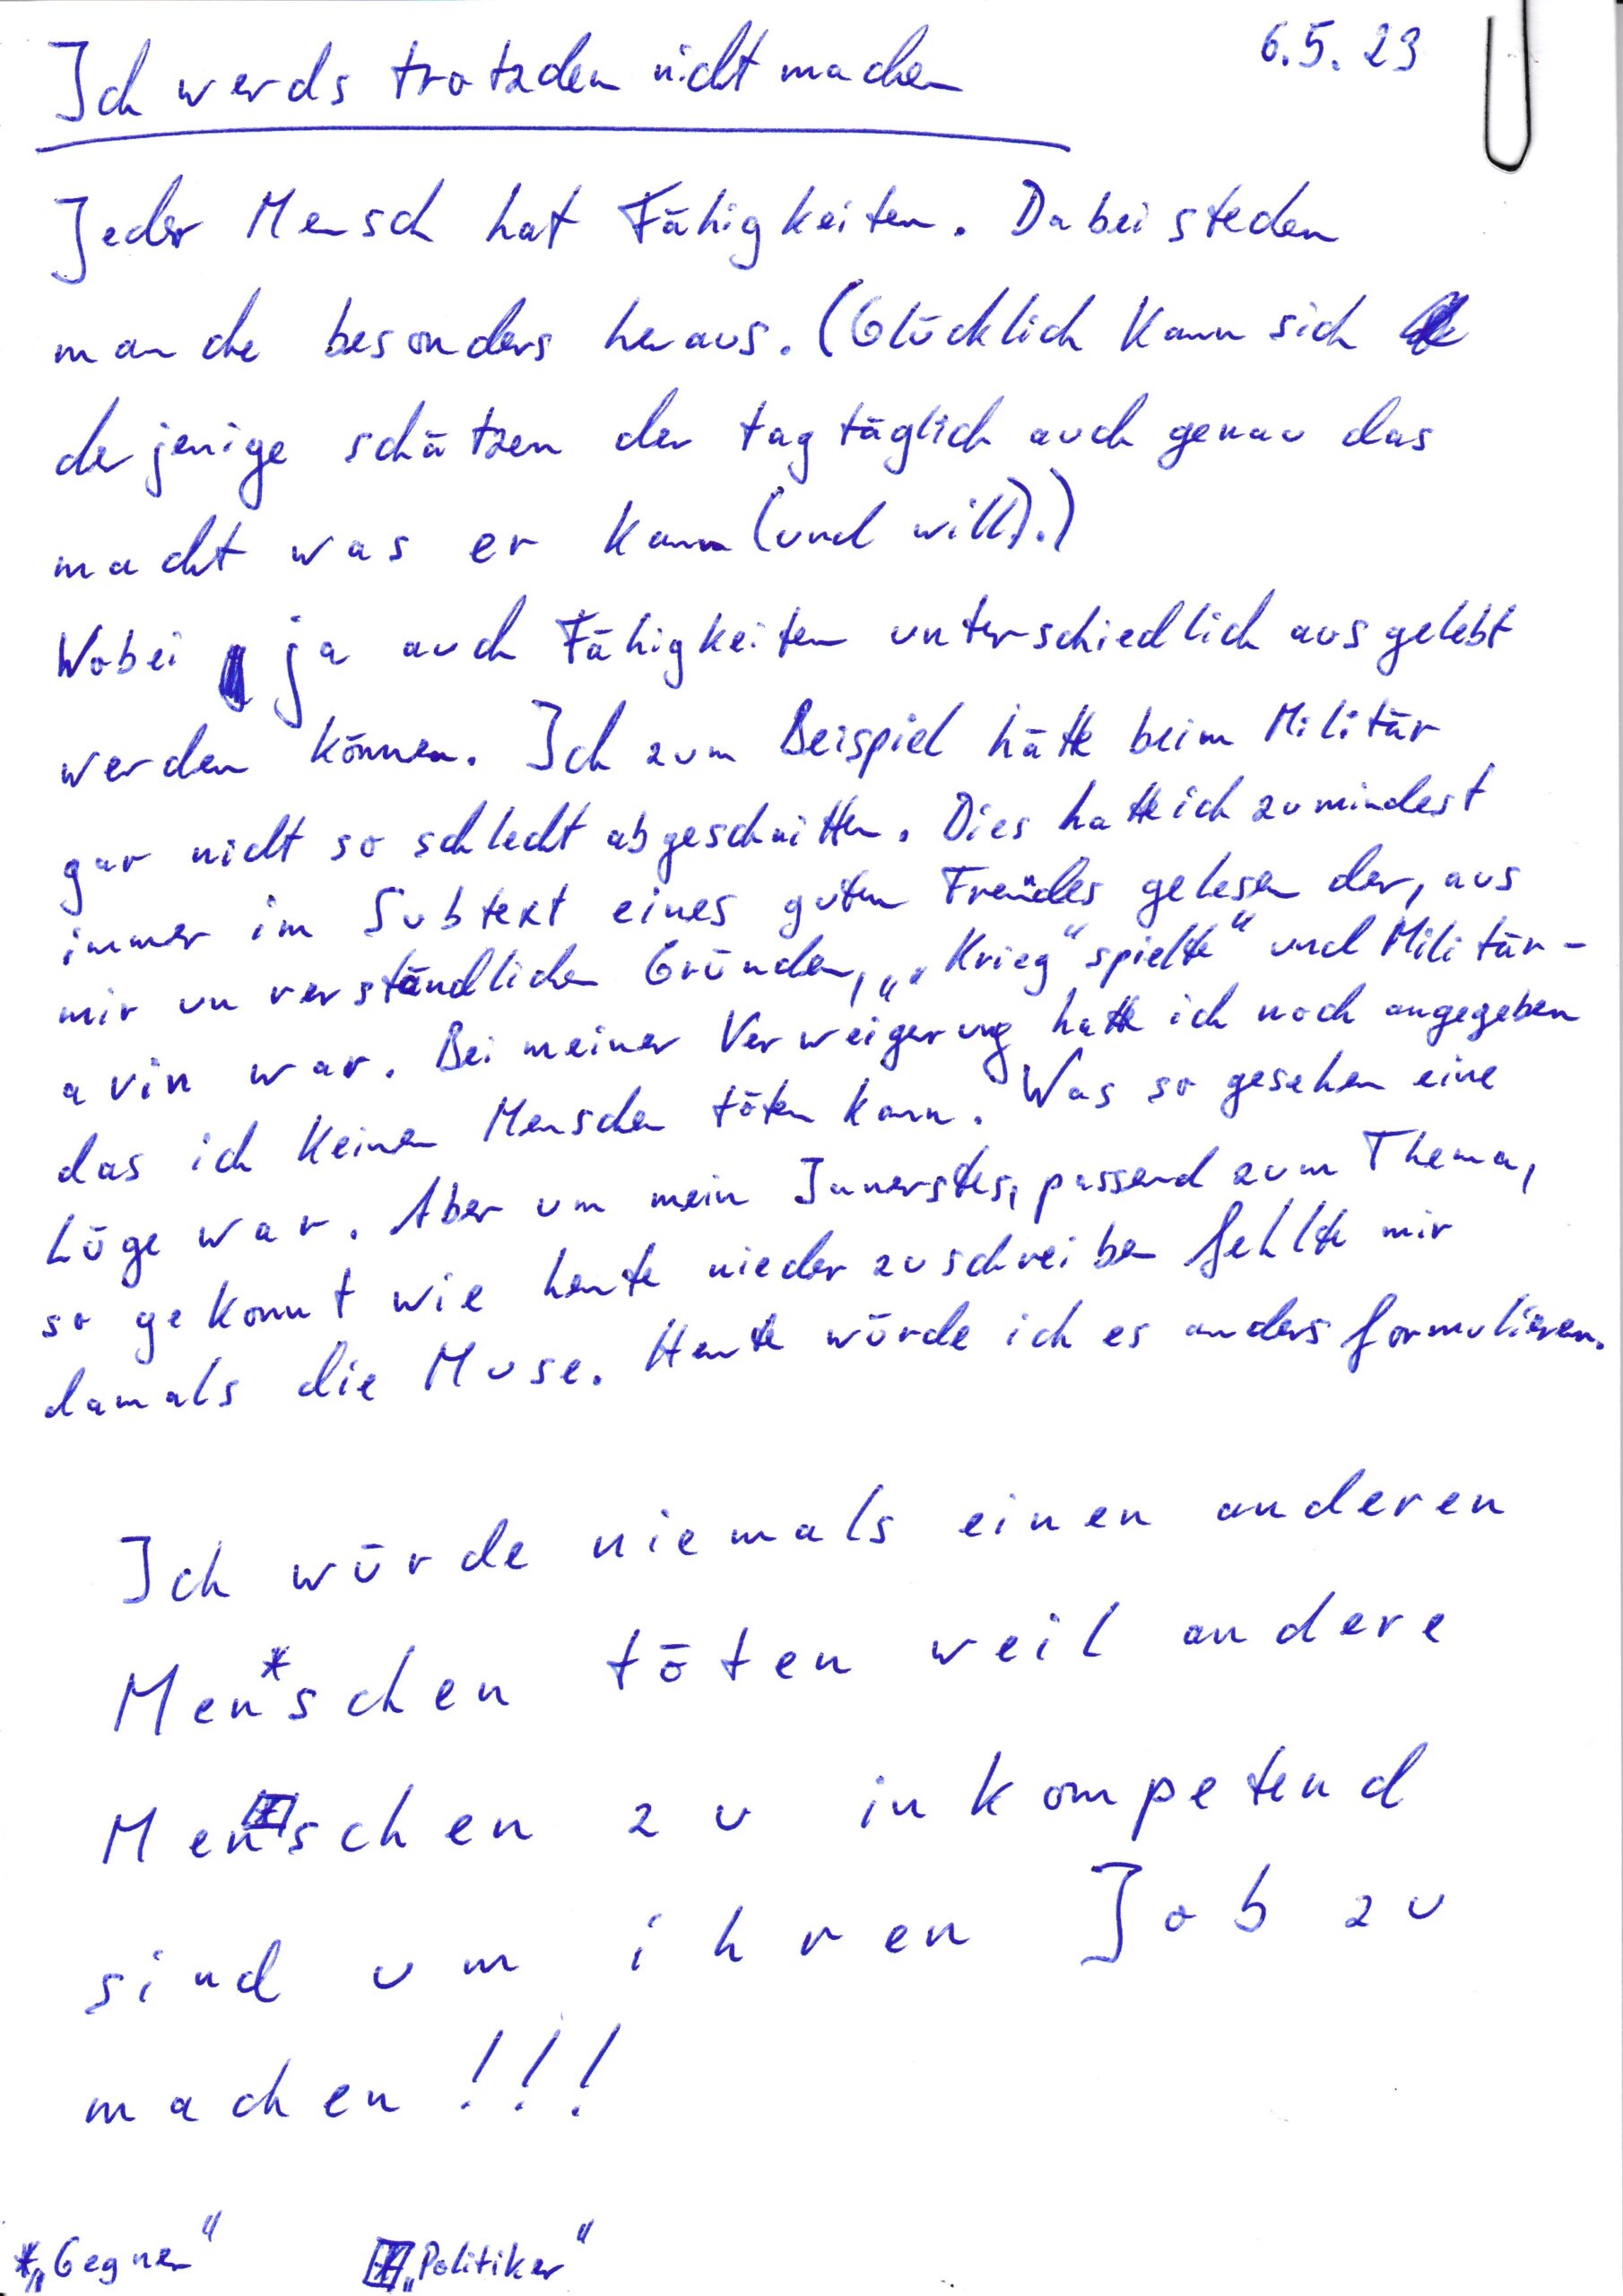 6.5.23
Ich werds trotzdem nicht machen
Jeder Mensch hat Fähigkeiten. Dabei stechen
manche besonders heraus. (Glücklich kann sich
derjenige schätzen der tagtäglich auch genau das
macht was er kann (und will).)
Wobei ja auch Fähigkeiten unterschiedlich ausgelebt
werden können. Ich zum Beispiel hätte beim Militär
gar nicht so schlecht abgeschnitten. Dies hatte ich zumindest
immer im Subtext eines guten Freundes gelesen der, aus
mir unverständlichen Gründen, „„Krieg“ spielte“ und Militär-
avin war. Bei meiner Verweigerung hatte ich noch angegeben
das ich keinen Menschen töten kann. Was so gesehen eine
Lüge war. Aber um mein Innerstes, passend zum Thema,
so gekonnt wie heute niederzuschreiben fehlte mir
damals die Muse. Heute würde ich es anders formulieren.
Ich würde niemals einen anderen
Men*schen töten weil andere
Men⊠schen zu inkompetend
sind um ihren Job zu
machen!!!
*„Gegner“ ⊠„Politiker“